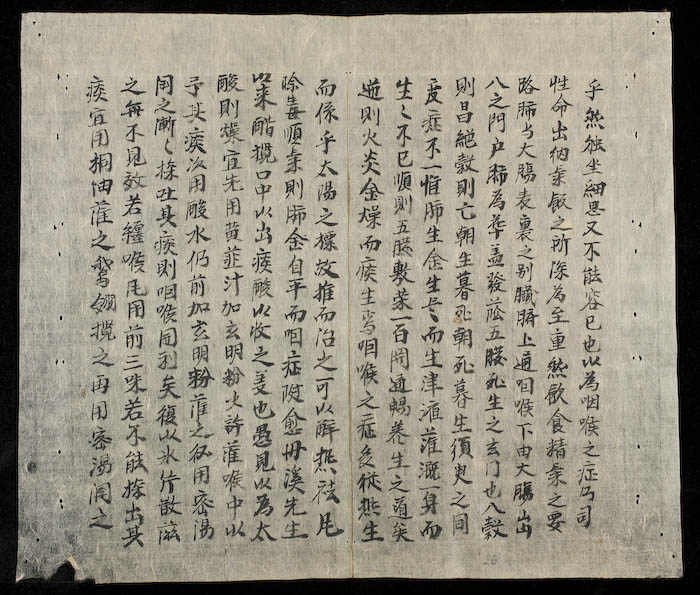 乎然独坐細思又不能容已也以為咽喉之症乃司
性命出納氣飲之所深為至重然飲食精氣之要
路肺与大膓表裏之别臓腑上通咽喉下由大膓出
八之門户肺為華盖發蔭五臓死生之玄門也八穀
則昌絶穀則亡朝生暮死朝死暮生須臾之间
症不一惟肺生金生而生津液灌溉一身而
生生不已順則五臓敷榮一百関通暢養生之道矣
逆則火炎金燥而痰生焉咽喉之症多従熱生
而係乎太陽之標故推而治之一可以解熱祛风
除毒順氣則肺金自平而咽症随愈丹溪先生
以来醋攪口中以出痰酸以收之美也愚見以為太
酸則燥宜先用黄韮汁加玄明粉少許灌喉中以
予其痰次用酸水仍前加玄明粉灌之後用密湯
用之漸〻探吐其痰則咽喉関利矣復以氷片散滋
之無不見效若纏喉风用前三味若不能探出其
痰宜用桐油灌之鵞翎攪之再用密湯潤之
26